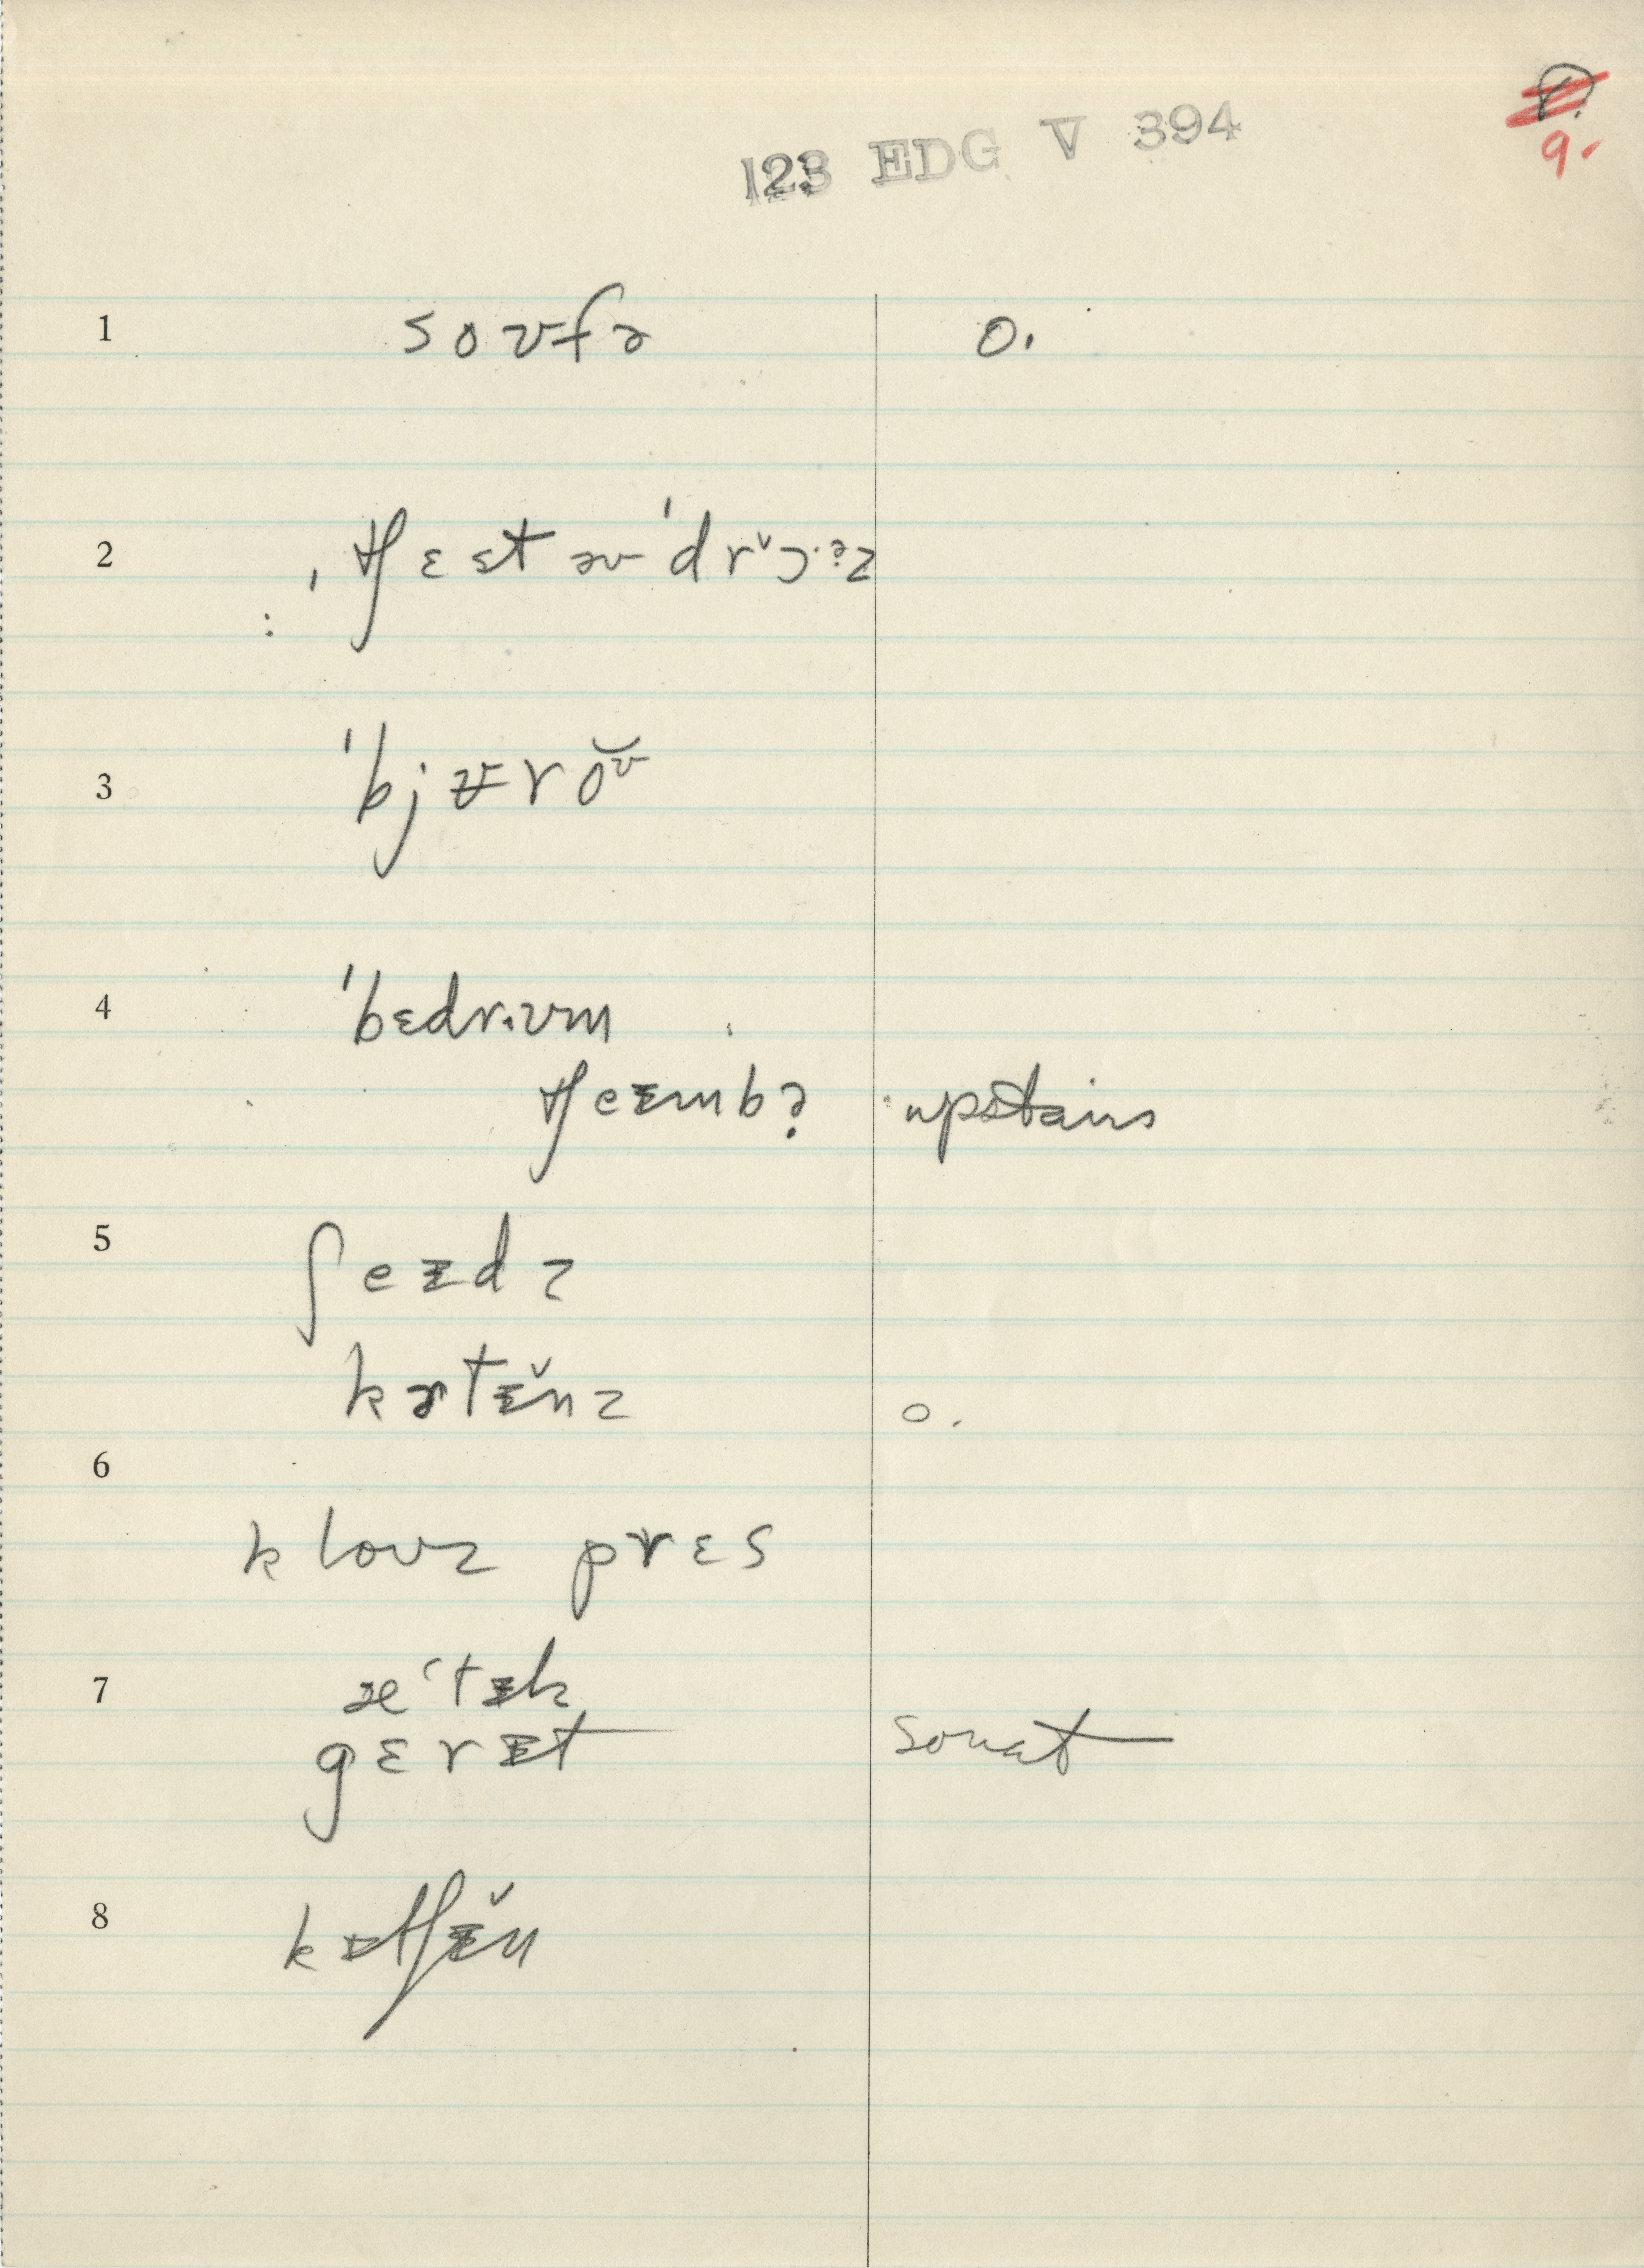 123 EDG V 394
9.
1 soʊfə o.
2 ˌtʃɛst əv ˈdrɔ·əz
3 ˈbjʊroʊ
4 ˈbɛdrʊm
tʃeɪmbə upstairs
5 ʃeɪdz
kɜtɪ̆nz o.
6
kloʊz prɛs
7 æˈtɪk
gɛrɪt so nat
8 kɪtʃɪ̆n